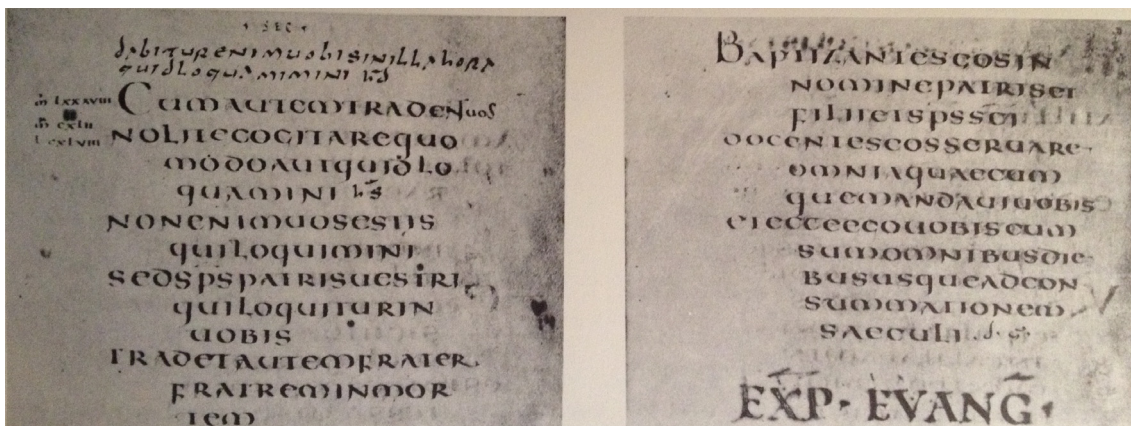 · SEC ·
dabiturenimuobisinillahora
quidloquamimini h̅d̅
m̅ lxxxviii
m̅ cxlii
l cxlviii
Cumautemtradentuos
nolitecogitarequo
modoautquidlo
quamini h̅s̅
nonenimuosestis
quiloquimini
sedspspatrisuestri
quiloquiturin
uobis
tradetautemfrater
fratreminmor
tem
Baptizanteseosin
nominepatriset
filiietspssci
docenteseosseruare
omniaquaecum
quemandauiuobis
eteccegouobiscum
sumomnibusdie
bususqueadcon
summationem
saeculi
EXP · EVANG ·